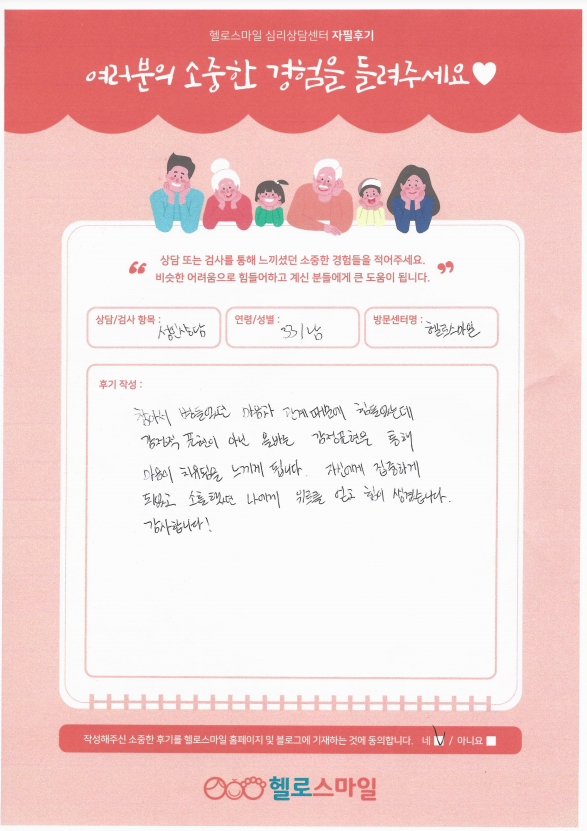 헬로스마일 심리상담센터 자필후기
여러분의 소중한 경험을 들려주세요
상담 또는 검사를 통해 느끼셨던 소중한 경험들을 적어주세요.
비슷한 어려움으로 힘들어하고 계신 분들에게 큰 도움이 됩니다.
상담/검사 항목 : 성인상담
연령/성별 : 33/남
방문센터명 : 헬로스마일
후기 작성 :
혼자서 힘들었던 마음과 관계 때문에 힘들었는데
감정적 표현이 아닌 올바른 감정표현을 통해
마음이 치유됨을 느끼게 됩니다. 자신에게 집중하게
되었고 소홀했던 나에게 위로를 얻고 힘이 생겼습니다.
감사합니다!
작성해주신 소중한 후기를 헬로스마일 홈페이지 및 블로그에 기재하는 것에 동의합니다. 네 / 아니요
헬로스마일